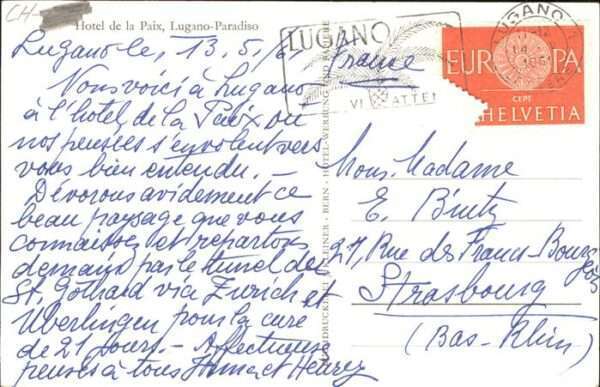 CH-
Hotel de la Paix, Lugano-Paradiso
Lugano le, 13.5.61
Nous voici à Lugano
à l'hotel de la Paix ou
nos pensées s'envolent vers
vous bien entendu. —
Dévorons avidement ce
beau paysage que vous
connaissez et repartons
demain par le tunel du
St. Gothard via Zurich et
Uberlingen pour la cure
de 21 jours. — Affectueuses
pensées à tous
et Henry
LUGANO
VI ATTEN
LUGANO
EUROPA
CEPT
HELVETIA
France
BERN - HOTEL-WERBUNG
Mons. Madame
E. Bintz
27, Rue des Francs-Bourgeois
Strasbourg
(Bas-Rhin)